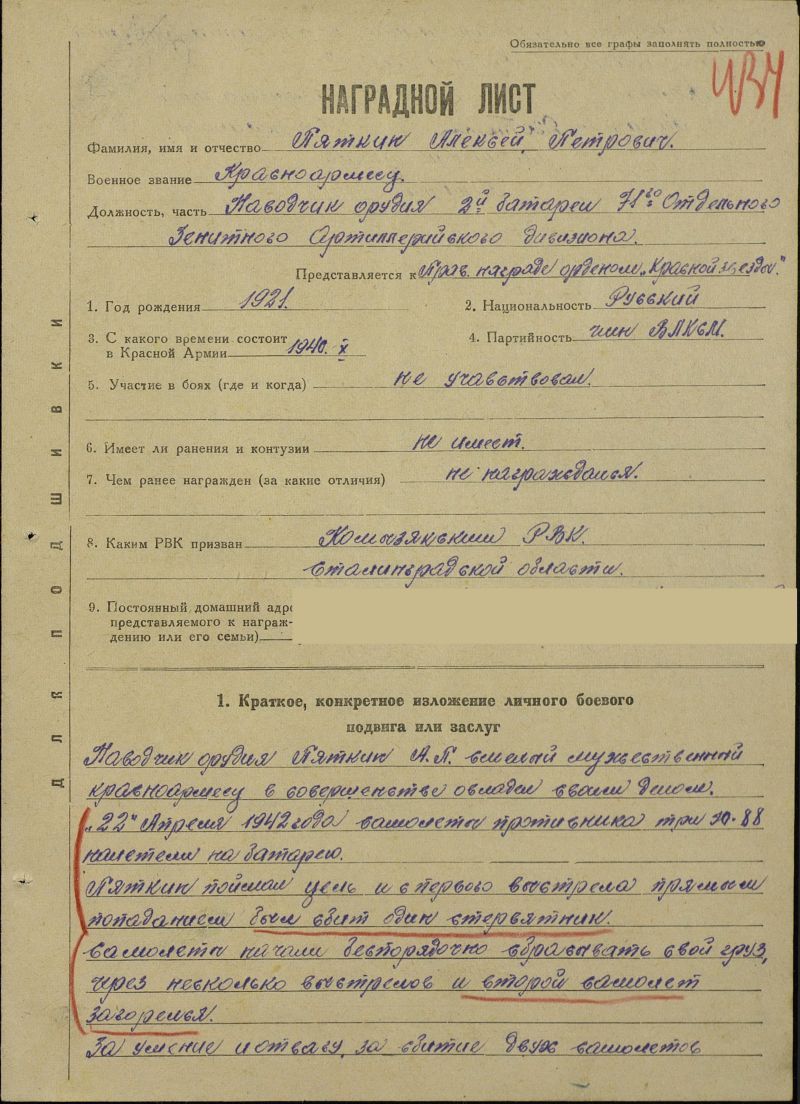 Обязательно все графы заполнять полностью
НАГРАДНОЙ ЛИСТ
Фамилия, имя и отчество Пяткин Алексей, Петрович.
Военное звание Красноармеец.
Должность, часть Наводчик орудия 2й батареи 71го Отдельного
Зенитного Артиллерийского дивизиона.
Представляется к Прав. награде орденом „Красной звезды"
1. Год рождения 1921.
2. Национальность Русский
3. С какого времени состоит
в Красной Армии 1940. X
4. Партийность член ВЛКСМ.
5. Участие в боях (где и когда) не учавствовал.
6. Имеет ли ранения и контузии не имеет.
7. Чем ранее награжден (за какие отличия) не награждался.
8. Каким РВК призван Камызякским РВК.
Сталинградской области.
9. Постоянный домашний адрес
представляемого к награж-
дению или его семьи)
1. Краткое, конкретное изложение личного боевого
подвига или заслуг
Наводчик орудия Пяткин А.П. смелый мужественный
красноармеец в совершенстве овладел своим делом.
„22" Апреля 1942 года самолеты противника три Ю-88
налетели на батарею.
Пяткин поймал цель и с первого выстрела прямым
попаданием был сбит один стервятник.
Самолеты начали беспорядочно сбрасывать свой груз,
через несколько выстрелов и второй самолет
загорелся.
За умение и отвагу, за сбитие двух самолетов
ДЛЯ ПОДШИВКИ